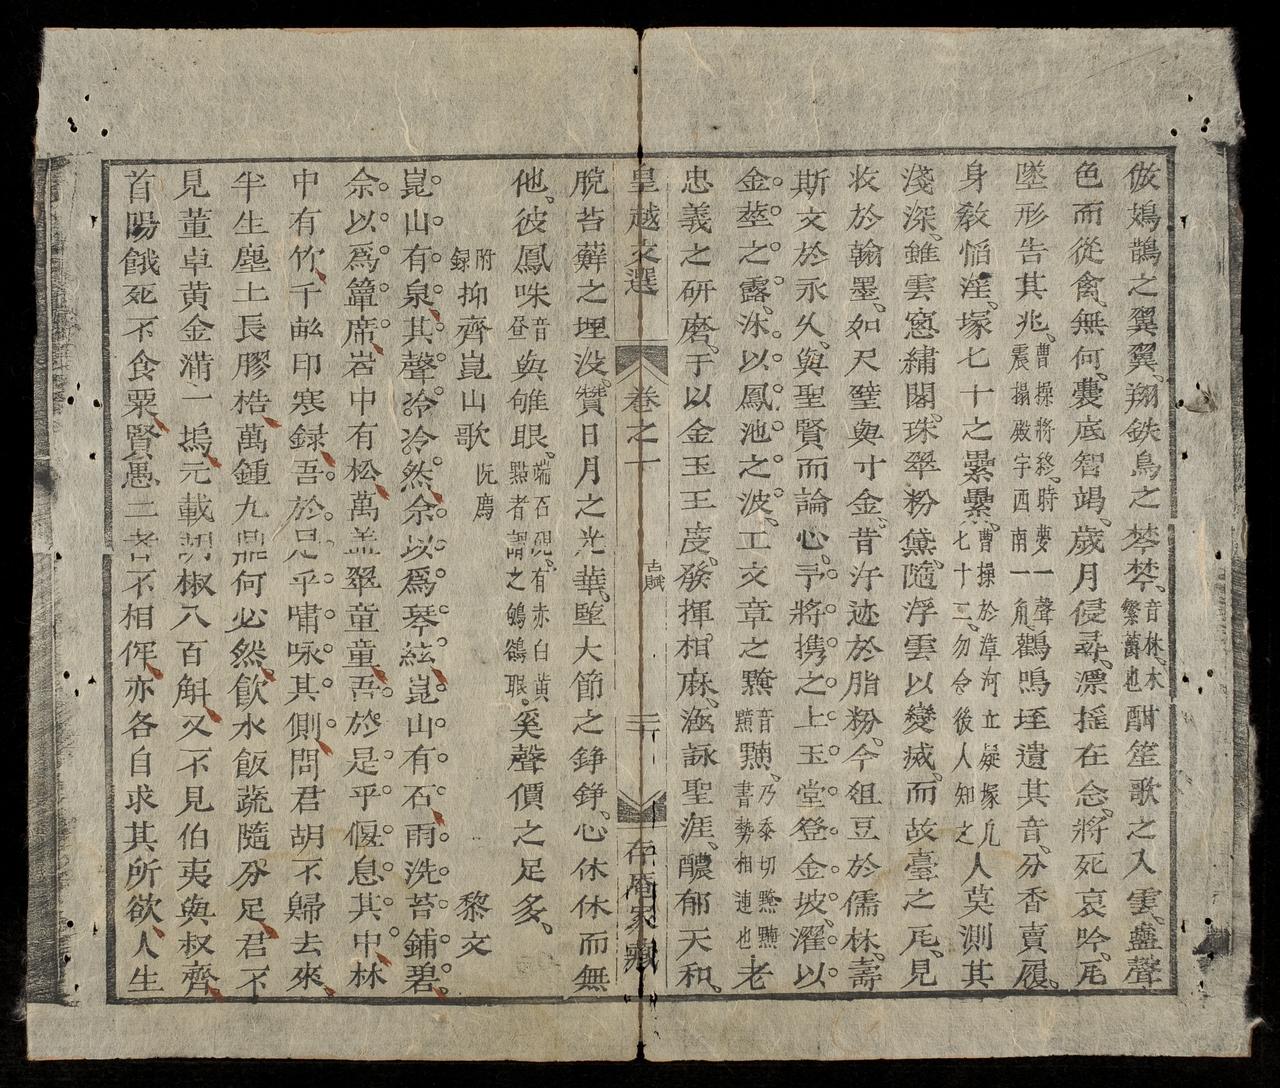 倣鴆鵲之翼翼翔鉄鳥之棼棼音林木繁蔚也酣笙歌之入雲盎聲
色而從禽無何囊底智竭歲月侵尋漂搖在念將死哀吟瓦
墜形告其兆曹操將終時夢一聲震搨殿宇西南一角鸛鳴垤遺其音分香賣履
身教慆淫塚七十之纍纍曹操於漳河立疑塚凢七十二勿令後人知之人莫測其
淺深雖雲窻繡閣珠翠粉黛隨浮雲以變烕而故臺之瓦見
收於翰墨如尺璧與寸金昔汙迹於脂粉今俎豆於儒林壽
斯文於永久與聖賢而論心予將携之上玉堂登金坡濯以
金莖之露沐以鳳池之波工文章之黮黮音黮乃忝切黮黮書勢相連也老
忠義之研磨于以金玉王度發揮相麻涵詠聖涯醲郁天和
皇越文選 卷之一 古賦 二十 存庵家藏
脫苔蘚之埋没贊日月之光華堅大節之錚錚心休休而無
他彼鳳咮音昼與雊眼端石硯有赤白黄㸃者謂之鴝鵒眼奚聲價之足多
附録抑齊崑山歌 阮廌 黎文
崑山有泉其聲冷冷然余以爲琴絃崑山有石雨洗苔鋪碧
余以爲簟席岩中有松萬盖翠童童吾於是乎偃息其中林
中有竹千畝印寒録吾於是乎嘯咏其側問君胡不歸去來
半生塵土長膠梏萬鍾九鼎何必然飮水飯蔬隨分足君不
見董卓黄金滿一塢元載胡椒八百斛又不見伯夷與叔齊
首陽餓死不食粟賢愚二者不相侔亦各自求其所欲人生